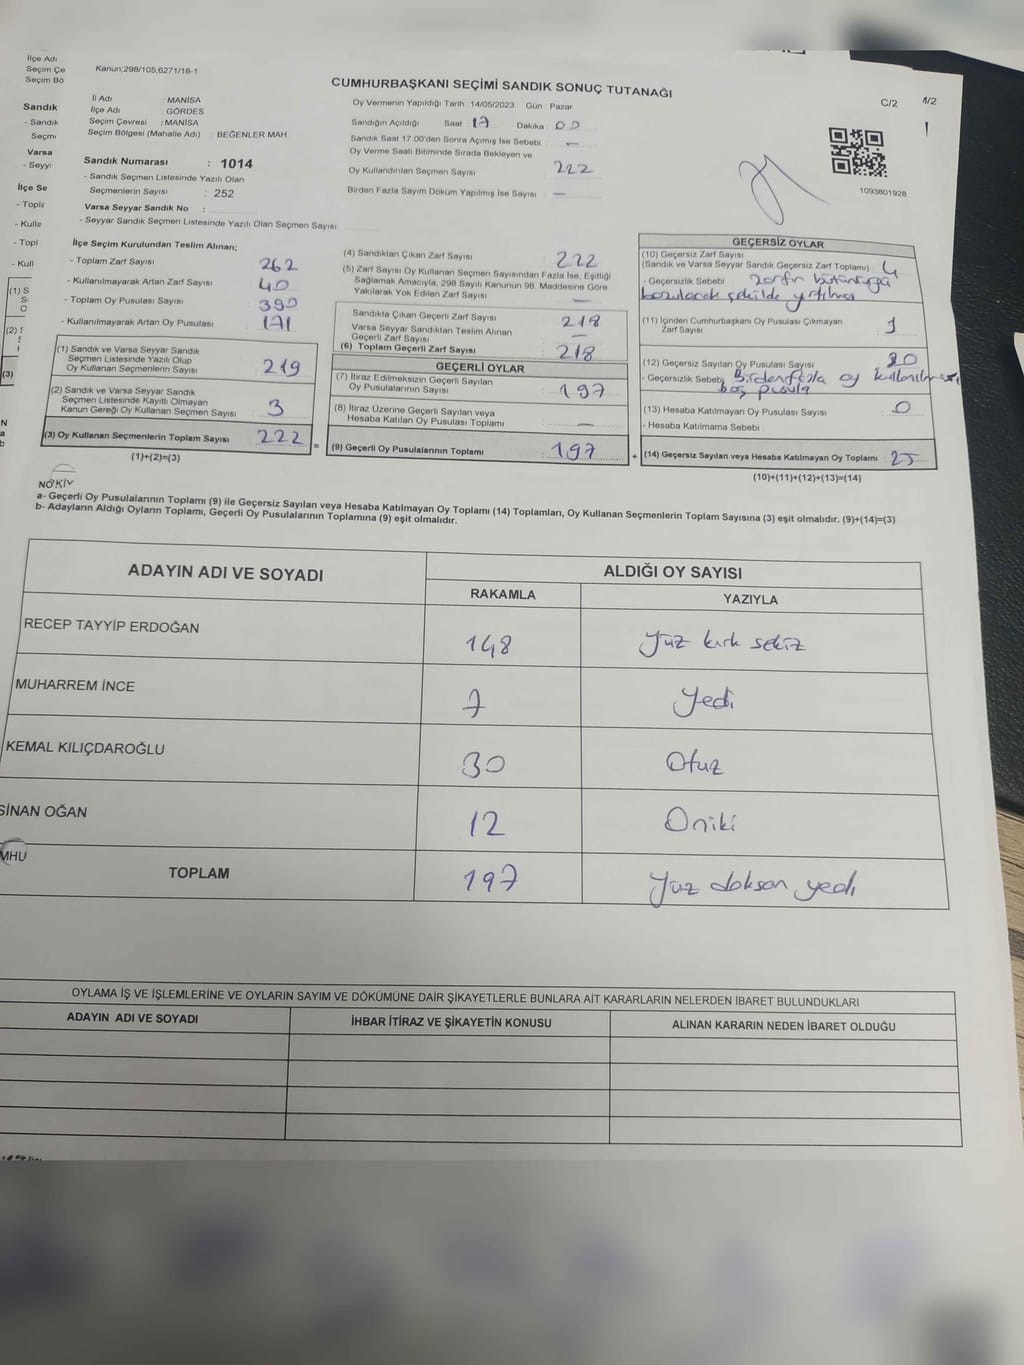 İlçe Adı
Seçim Çe
Seçim Bö
Sandık
- Sandık
Seçme
Varsa
- Seyya
İlçe Se
- Topla
- Kulla
- Topl
- Kull
Kanun;298/105,6271/18-1
CUMHURBAŞKANI SEÇİMİ SANDIK SONUÇ TUTANAĞI
C/2
A/2
1093801928
İl Adı : MANİSA
İlçe Adı : GÖRDES
Seçim Çevresi : MANİSA
Seçim Bölgesi (Mahalle Adı) : BEĞENLER MAH
Sandık Numarası : 1014
- Sandık Seçmen Listesinde Yazılı Olan
Seçmenlerin Sayısı : 252
Varsa Seyyar Sandık No :
- Seyyar Sandık Seçmen Listesinde Yazılı Olan Seçmen Sayısı
Oy Vermenin Yapıldığı Tarih : 14/05/2023 Gün : Pazar
Sandığın Açıldığı Saat : 17 Dakika : 00
Sandık Saat 17:00'den Sonra Açımış İse Sebebi : —
Oy Verme Saati Bitiminde Sırada Bekleyen ve
Oy Kullandırılan Seçmen Sayısı 222
Birden Fazla Sayım Döküm Yapılmış İse Sayısı : —
İlçe Seçim Kurulundan Teslim Alınan;
- Toplam Zarf Sayısı 262
- Kullanılmayarak Artan Zarf Sayısı 40
- Toplam Oy Pusulası Sayısı 390
- Kullanılmayarak Artan Oy Pusulası 171
(1) Sandık ve Varsa Seyyar Sandık
Seçmen Listesinde Yazılı Olup
Oy Kullanan Seçmenlerin Sayısı 219
(2) Sandık ve Varsa Seyyar Sandık
Seçmen Listesinde Kayıtlı Olmayan
Kanun Gereği Oy Kullanan Seçmen Sayısı 3
(3) Oy Kullanan Seçmenlerin Toplam Sayısı 222
(1)+(2)=(3)
(4) Sandıktan Çıkan Zarf Sayısı 222
(5) Zarf Sayısı Oy Kullanan Seçmen Sayısından Fazla İse, Eşitliği
Sağlamak Amacıyla, 298 Sayılı Kanunun 98. Maddesine Göre
Yakılarak Yok Edilen Zarf Sayısı —
Sandıkta Çıkan Geçerli Zarf Sayısı 218
Varsa Seyyar Sandıktan Teslim Alınan
Geçerli Zarf Sayısı —
(6) Toplam Geçerli Zarf Sayısı 218
GEÇERLİ OYLAR
(7) İtiraz Edilmeksizin Geçerli Sayılan
Oy Pusulalarının Sayısı 197
(8) İtiraz Üzerine Geçerli Sayılan veya
Hesaba Katılan Oy Pusulası Toplamı —
(9) Geçerli Oy Pusulalarının Toplamı 197
=
+
GEÇERSİZ OYLAR
(10) Geçersiz Zarf Sayısı
(Sandık ve Varsa Seyyar Sandık Geçersiz Zarf Toplamı) : 4
- Geçersizlik Sebebi : zarfın bütünlüğü
bozulacak şekilde yırtılması
(11) İçinden Cumhurbaşkanı Oy Pusulası Çıkmayan
Zarf Sayısı 1
(12) Geçersiz Sayılan Oy Pusulası Sayısı 20
- Geçersizlik Sebebi : Birden fazla oy kullanılması
boş pusula
(13) Hesaba Katılmayan Oy Pusulası Sayısı 0
- Hesaba Katılmama Sebebi :
(14) Geçersiz Sayılan veya Hesaba Katılmayan Oy Toplamı : 25
(10)+(11)+(12)+(13)=(14)
a- Geçerli Oy Pusulalarının Toplamı (9) ile Geçersiz Sayılan veya Hesaba Katılmayan Oy Toplamı (14) Toplamları, Oy Kullanan Seçmenlerin Toplam Sayısına (3) eşit olmalıdır. (9)+(14)=(3)
b- Adayların Aldığı Oyların Toplamı, Geçerli Oy Pusulalarının Toplamına (9) eşit olmalıdır.
ADAYIN ADI VE SOYADI
ALDIĞI OY SAYISI
RAKAMLA
YAZIYLA
RECEP TAYYİP ERDOĞAN 148 Yüz kırk sekiz
MUHARREM İNCE 7 Yedi
KEMAL KILIÇDAROĞLU 30 Otuz
SİNAN OĞAN 12 Oniki
TOPLAM 197 Yüz doksan yedi
OYLAMA İŞ VE İŞLEMLERİNE VE OYLARIN SAYIM VE DÖKÜMÜNE DAİR ŞİKAYETLERLE BUNLARA AİT KARARLARIN NELERDEN İBARET BULUNDUKLARI
ADAYIN ADI VE SOYADI
İHBAR İTİRAZ VE ŞİKAYETİN KONUSU
ALINAN KARARIN NEDEN İBARET OLDUĞU